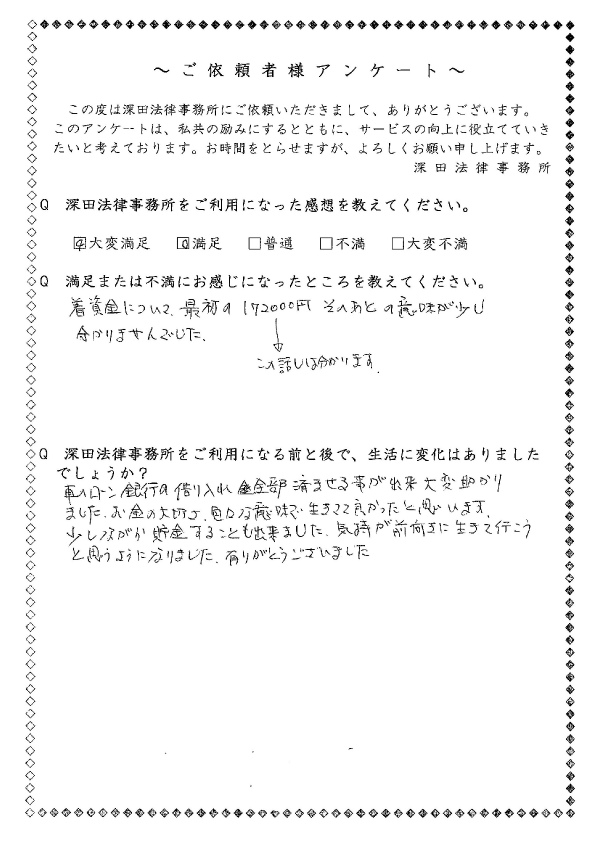 ～ご依頼者様アンケート～
この度は深田法律事務所にご依頼いただきまして、ありがとうございます。
このアンケートは、私共の励みにするとともに、サービスの向上に役立てていき
たいと考えております。お時間をとらせますが、よろしくお願い申し上げます。
深田法律事務所
Q 深田法律事務所をご利用になった感想を教えてください。
☑大変満足 ☑満足 □普通 □不満 □大変不満
Q 満足または不満にお感じになったところを教えてください。
着資金について、最初の172000円 そのあとの意味が少し
分かりませんでした。
この話しは分かります。
Q 深田法律事務所をご利用になる前と後で、生活に変化はありました
でしょうか？
車のローン 銀行の借り入れ 全部 済ませる事が出来 大変助かり
ました。お金の大切さ、色々な意味で生きてて良かったと思います。
少しながが貯金することも出来ました。気持が前向きに生きて行こう
と思うようになりました。ありがとうございました